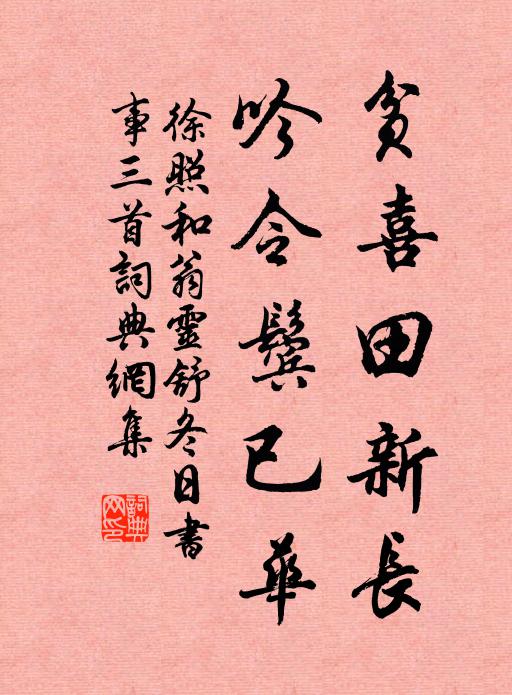 貧喜田新長
吟令鬢已華
徐照和翁靈舒冬日書
事三首詞典網集
詞典
网印